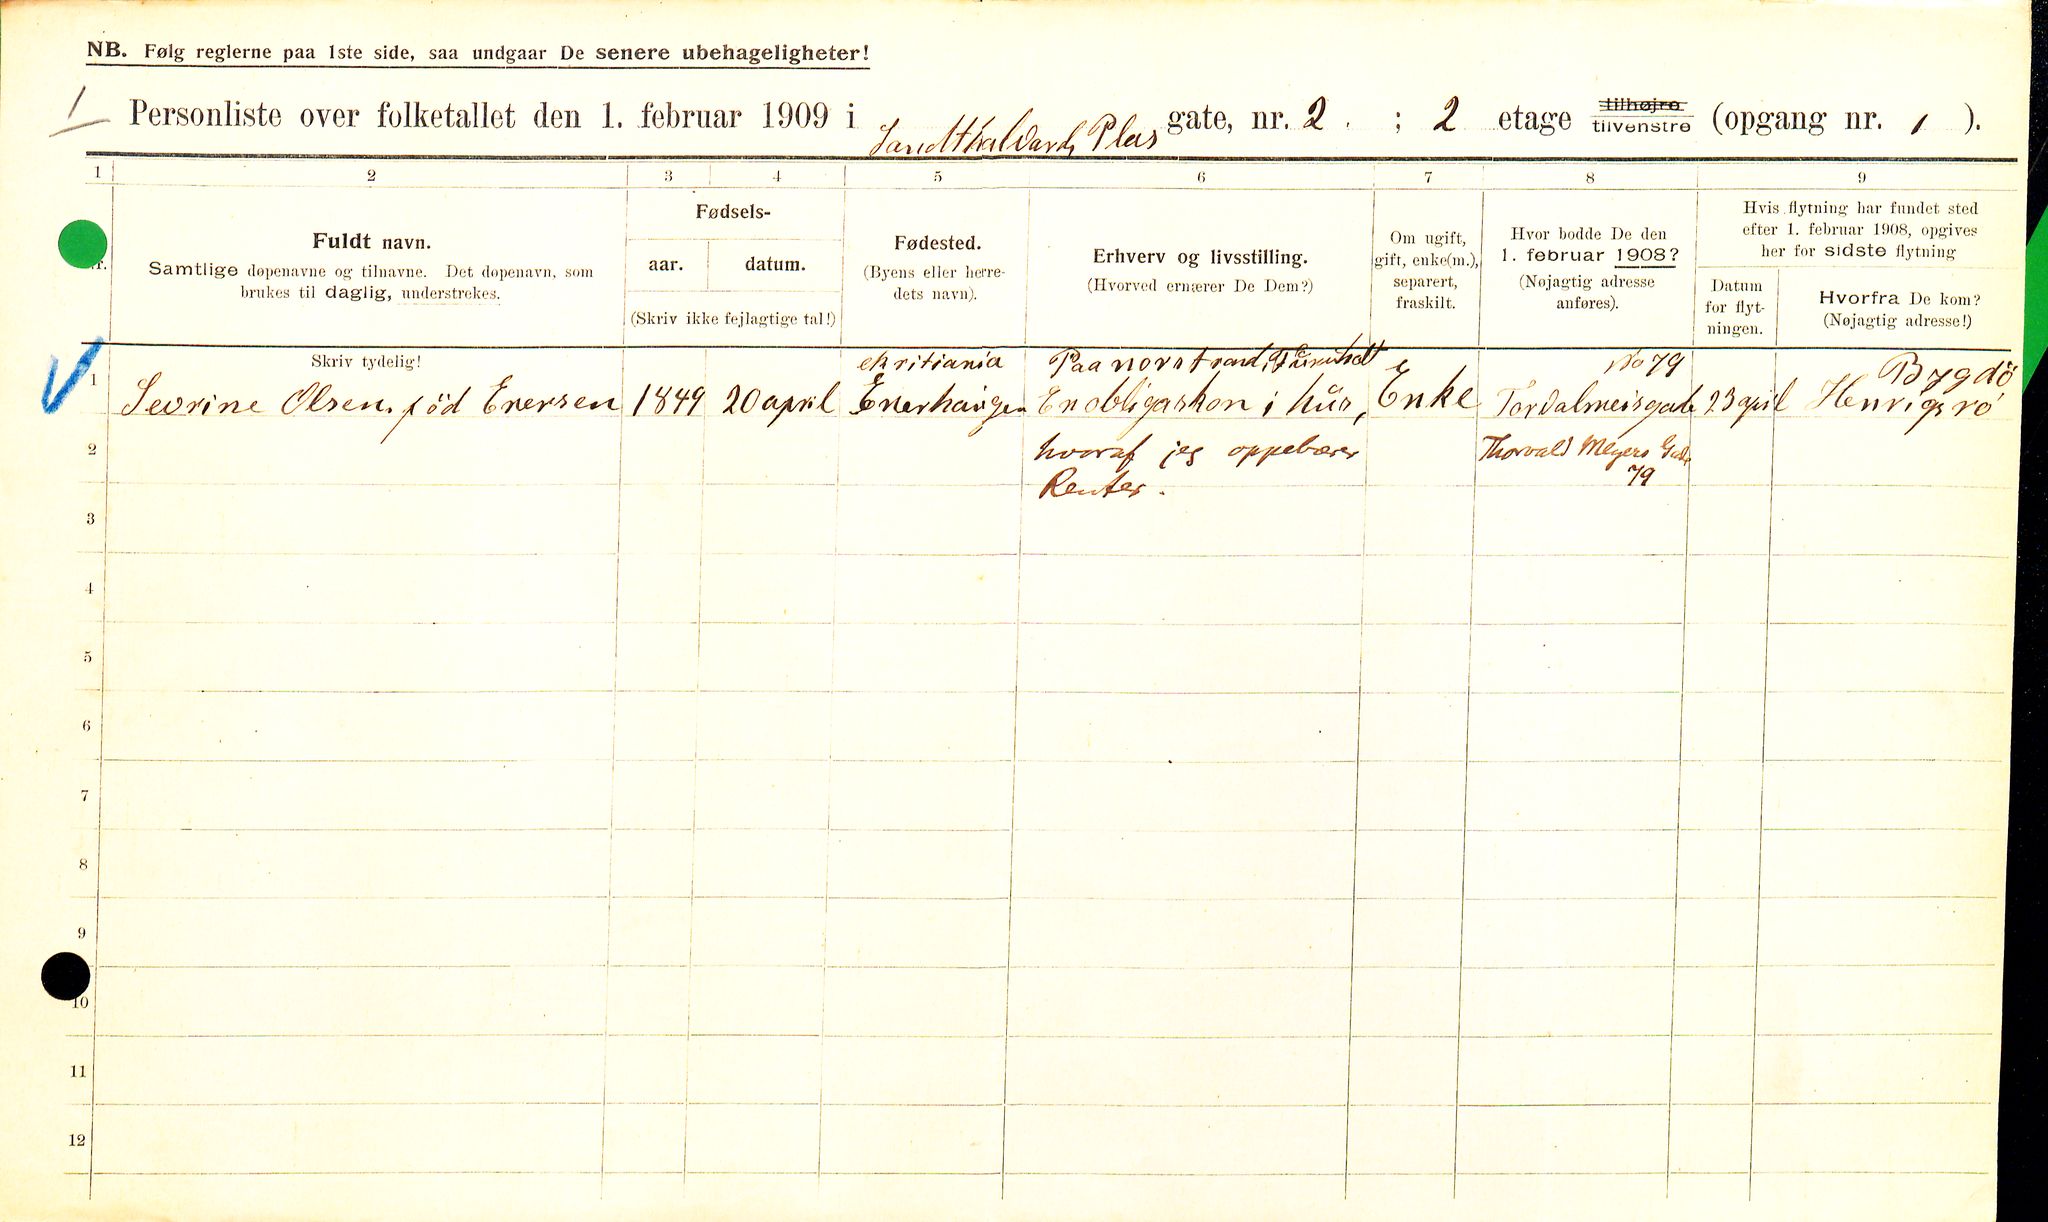 NB. Følg reglerne paa 1ste side, saa undgaar De senere ubehageligheter!
1 Personliste over folketallet den 1. februar 1909 i Sandthalvards Plas gate, nr. 2. ; 2 etage tilhøjre tilvenstre (opgang nr. 1 ).
1 2 3 4 5 6 7 8 9
Nr.
Fuldt navn.
Samtlige døpenavne og tilnavne. Det døpenavn, som
brukes til daglig, understrekes.
Fødsels-
aar. datum.
(Skriv ikke fejlagtige tal!)
Fødested.
(Byens eller herre-
dets navn).
Erhverv og livsstilling.
(Hvorved ernærer De Dem?)
Om ugift,
gift, enke(m.),
separert,
fraskilt.
Hvor bodde De den
1. februar 1908?
(Nøjagtig adresse
anføres).
Hvis flytning har fundet sted
efter 1. februar 1908, opgives
her for sidste flytning
Datum
for flyt-
ningen.
Hvorfra De kom?
(Nøjagtig adresse!)
Skriv tydelig!
1
Sevrine Olsen. föd Enersen
1849
20 april
chritiania
Enerhaugen
Paa norstrand,
En obligashon i hüs,
hvoraf jeg oppebærer
Renter.
Enke
No 79
Tordalmeisgade
Thorvald Meyers Gade
79
23 april
Bygdö
Henrigsrö
2
3
4
5
6
7
8
9
10
11
12